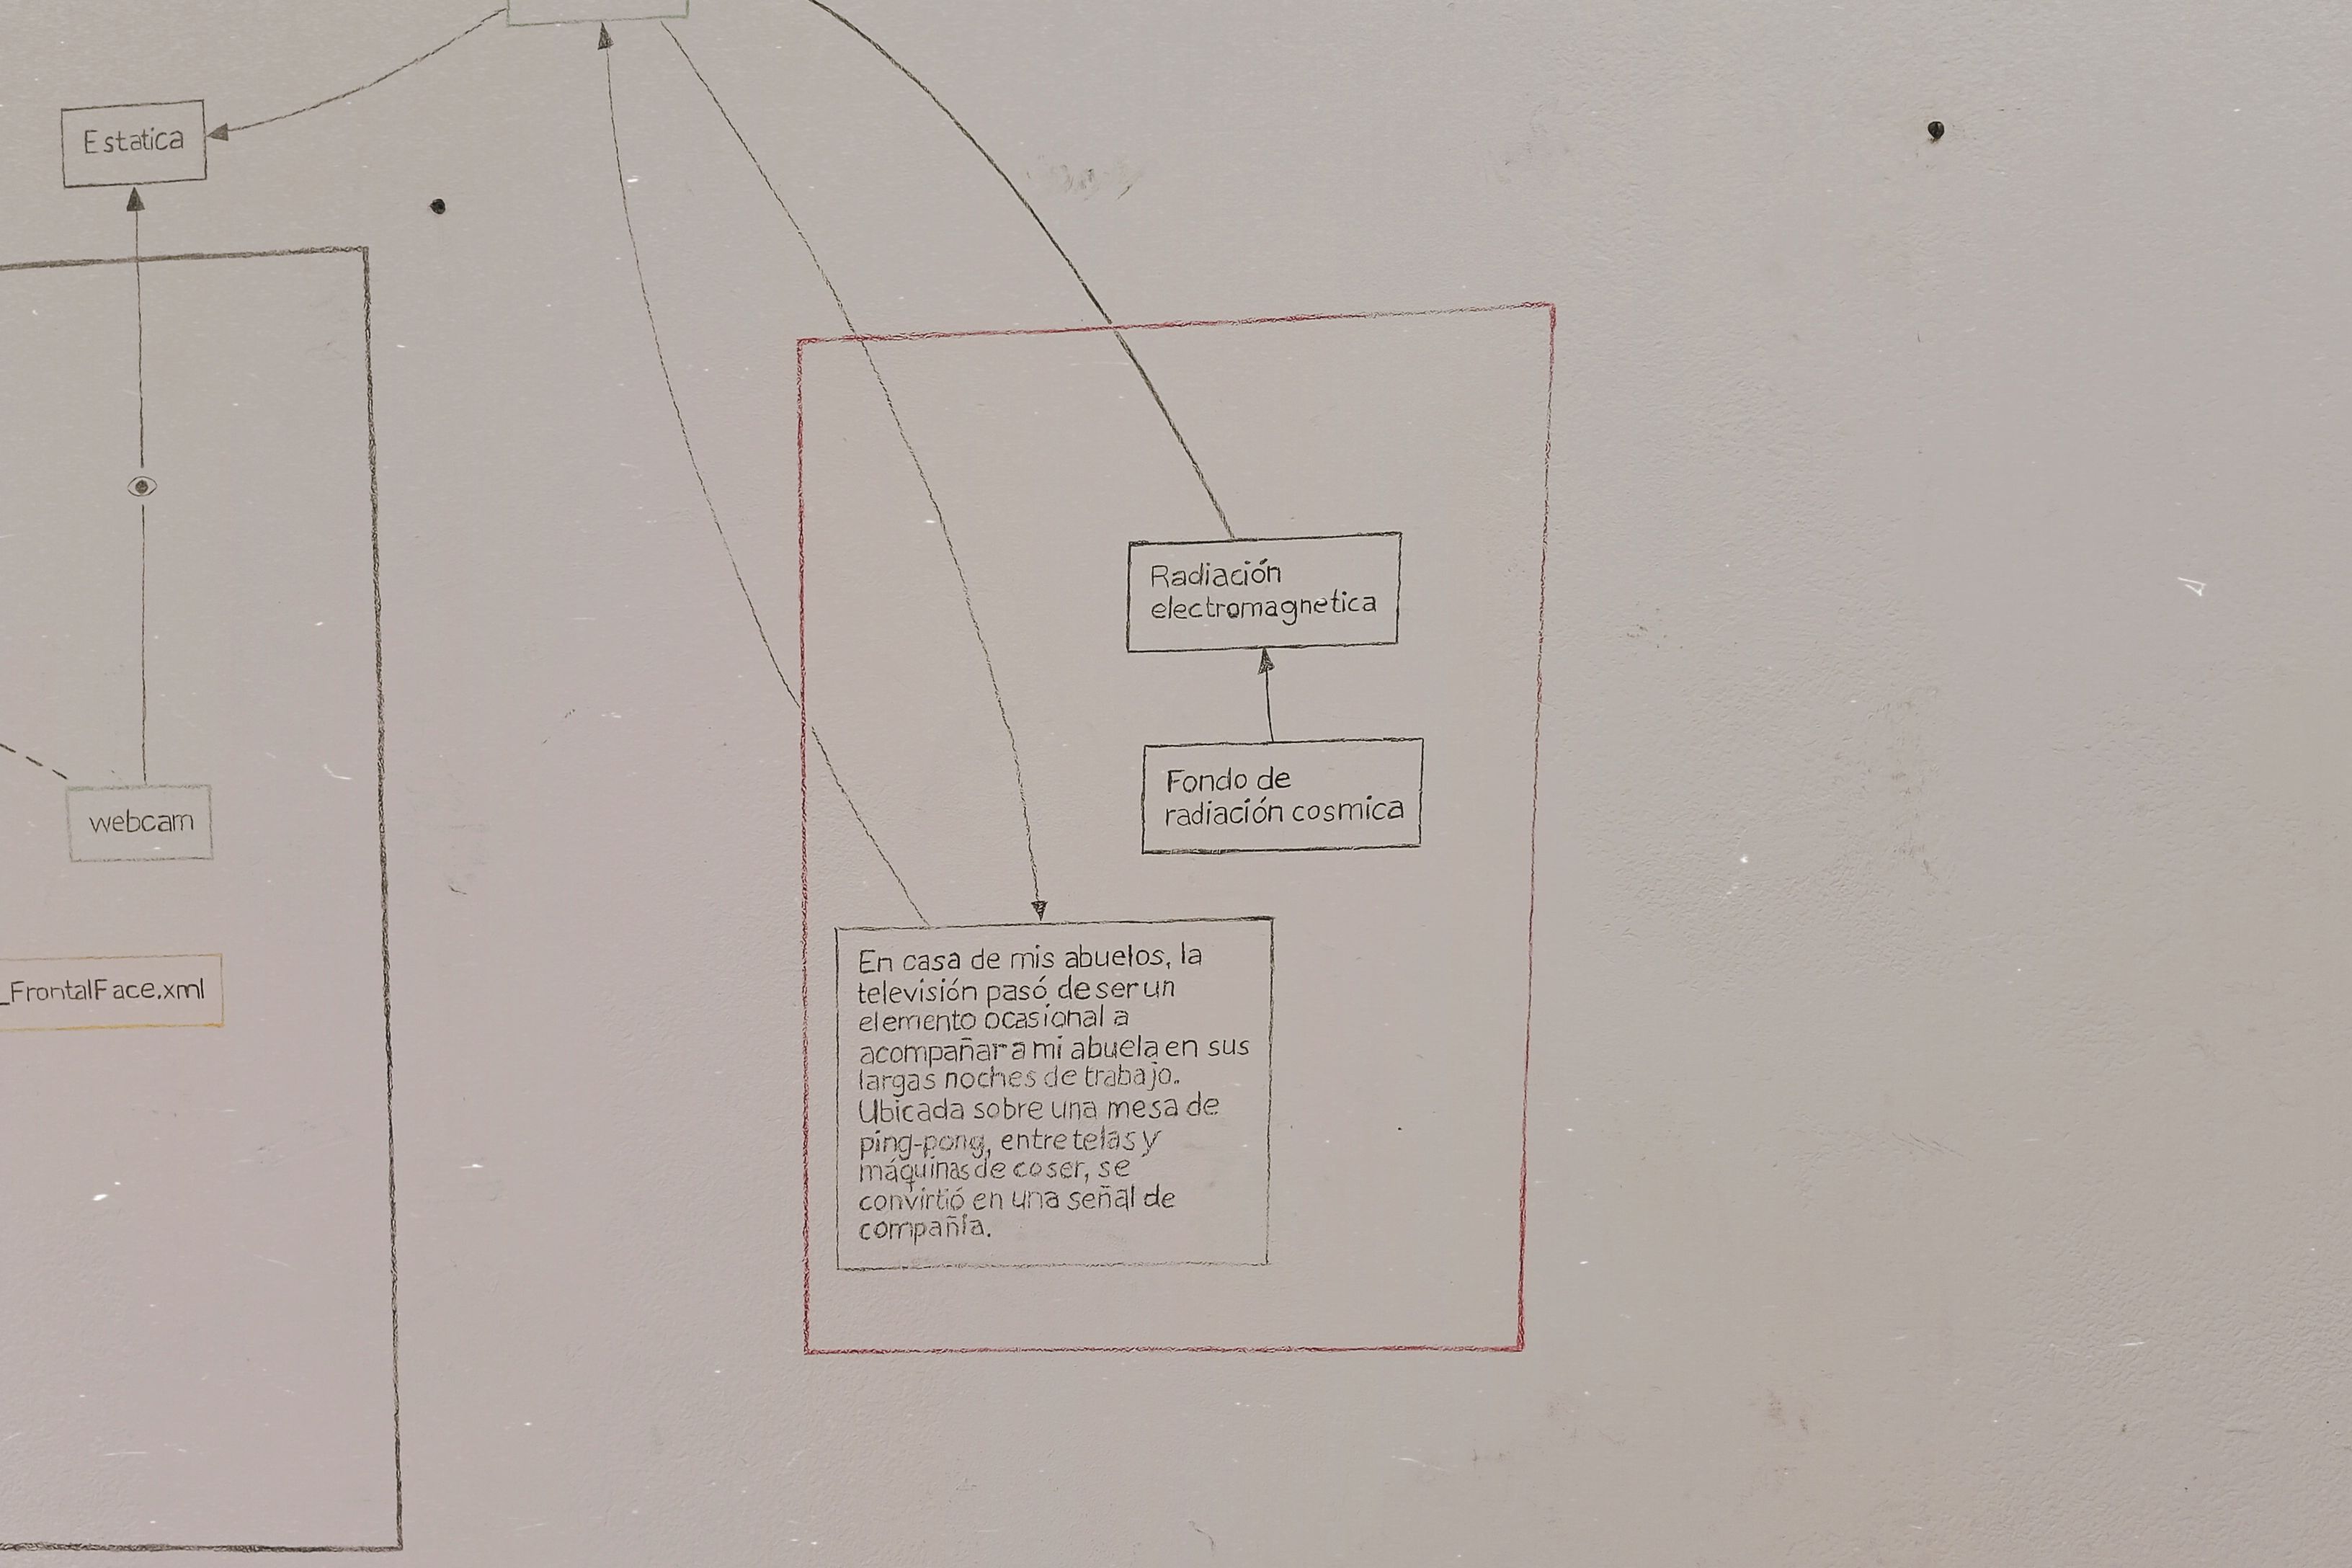 Estatica
webcam
_FrontalFace.xml
Radiación
electromagnetica
Fondo de
radiación cosmica
En casa de mis abuelos, la
televisión pasó de ser un
elemento ocasional a
acompañar a mi abuela en sus
largas noches de trabajo.
Ubicada sobre una mesa de
ping-pong, entre telas y
máquinas de coser, se
convirtió en una señal de
compañia.